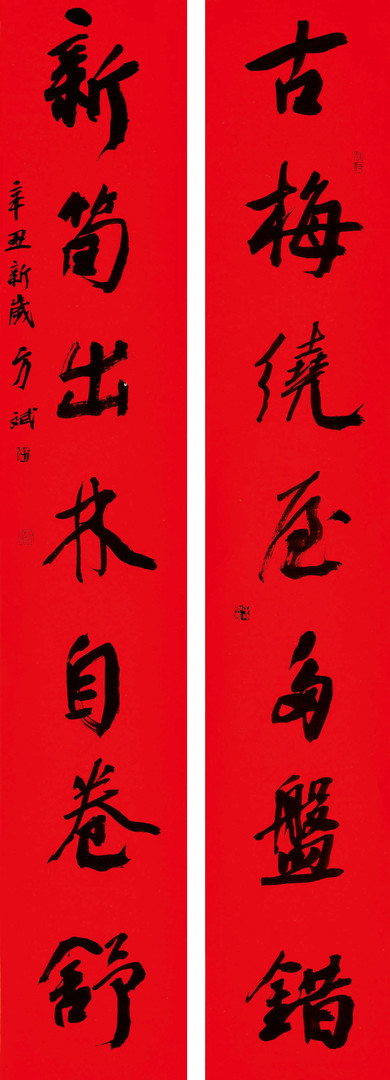 古梅繞屋多盤錯
新筍出林自卷舒
辛丑新歲方斌